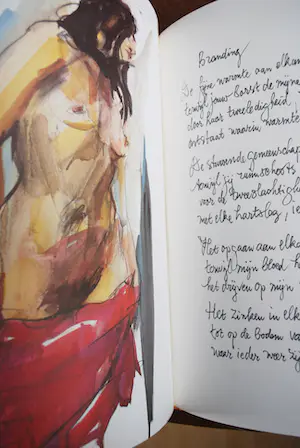 Branding
De fijne warmte aan elkaa
terwijl jouw borst de mijne
door haar tweeledigheid,
ontstaat waarin, warmte
De sturende gemeenschap
terwijl jij
voor de tweeslachtigh
met elke hartslag, ie
Het opgaan aan elka
terwijl mijn bloed h
het drijven op mijn
Het zinken in elk
tot op de bodem va
waar ieder weer zij